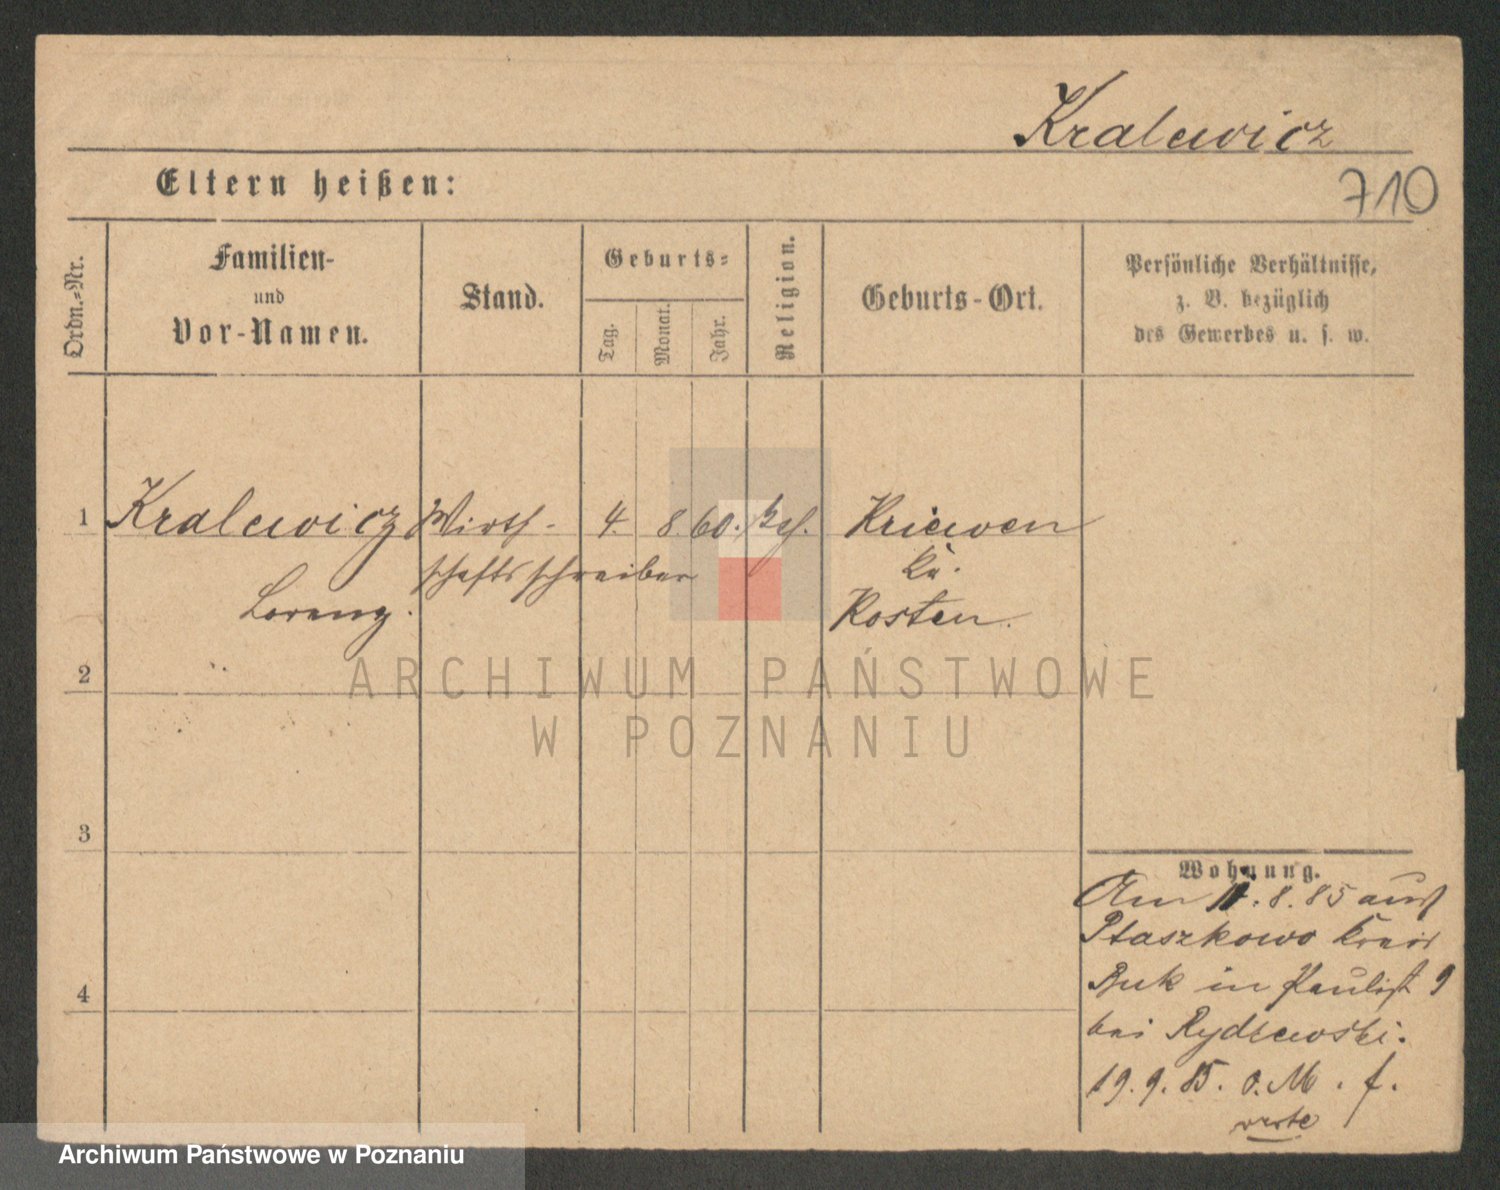 Kralewicz
710
Eltern heißen:
Ordn.=Nr.
Familien-
und
Vor-Namen.
Stand.
Geburts=
Tag.
Monat.
Jahr.
Religion.
Geburts-Ort.
Persönliche Verhältnisse,
z. B. bezüglich
des Gewerbes u. s. w.
1 Kralewicz Wirth- 4. 8. 60. kth. Kriewen
schaftsschreiber Kr.
Lorenz. Kosten.
2
3
4
Wohnung.
Am 11.8.85 aus
Ptaszkowo Kreis
Buk in Paulist 9
bei Rydlewski.
19.9.85. o. M. f.
ARCHIWUM PAŃSTWOWE
W POZNANIU
Archiwum Państwowe w Poznaniu